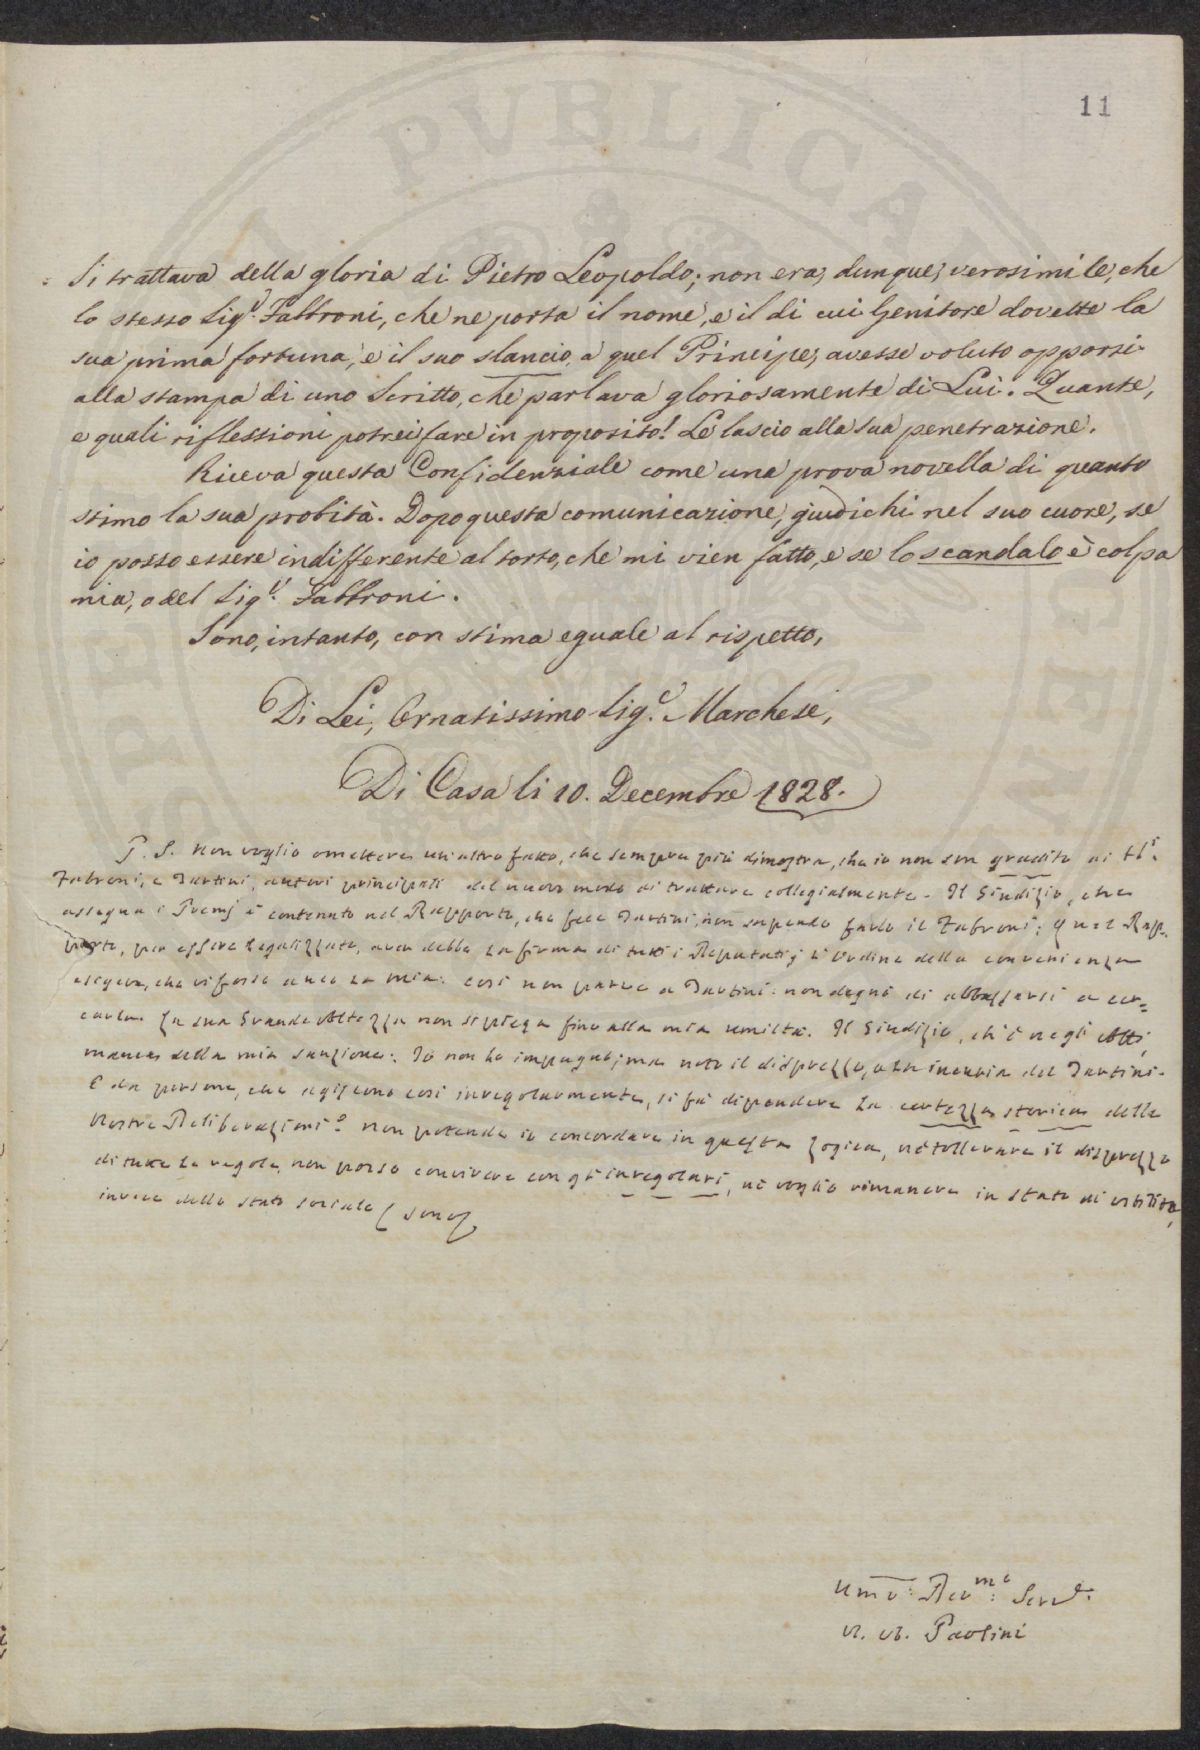 11
Si trattava della gloria di Pietro Leopoldo; non era, dunque, verosimile, che
lo stesso Sigr. Fabbroni, che ne porta il nome, e il di cui Genitore dovette la
sua prima fortuna, e il suo slancio, a quel Principe, avesse voluto opporsi
alla stampa di uno Scritto, che parlava gloriosamente di Lui. Quante,
e quali riflessioni potrei fare in proposito! Le lascio alla sua penetrazione.
Riceva questa Confidenziale come una prova novella di quanto
stimo la sua probità. Dopo questa comunicazione, giudichi nel suo cuore, se
io posso essere indifferente al torto, che mi vien fatto, e se lo scandalo è colpa
mia, o del Sigr. Fabbroni.
Sono, intanto, con stima eguale al rispetto,
Di Lei, Ornatissimo Sige. Marchese,
Di Casa li 10. Decembre 1828.
P. S. Non voglio omettere un'altro fatto, che sempre più dimostra, che io non son gradito ai SSi.
Fabroni, e Tartini, autori principali del nuovo modo di trattare collegialmente. Il Giudizio, che
assegna i Premj è contenuto nel Rapporto, che fece Tartini, non sapendo farlo il Fabroni; quel Rap-
porto, per essere legalizzato, aver debbe la firma di tutti i Deputati; l'ordine della convenienza
esigeva, che vi fosse anco la mia: così non parve a Tartini: non degnò di abbassarsi a cer=
carla. La sua Grande Altezza non si piega fino alla mia umiltà. Il Giudizio, ch'è negli Atti,
manca della mia sanzione: Io non lo impugno; ma noto il disprezzo, o la incuria del Tartini.
E da persone, che agiscono così irregolarmente, si fà dipendere la certezza storica delle
Nostre Deliberazioni? Non potendo io concordare in questa Logica, nè tollerare il disprezzo
di tutte le regole, non posso convivere con gl'irregolari, nè voglio rimanere in stato di ostilità,
invece dello stato sociale
Umo: Devmo: Serve.
Paolini